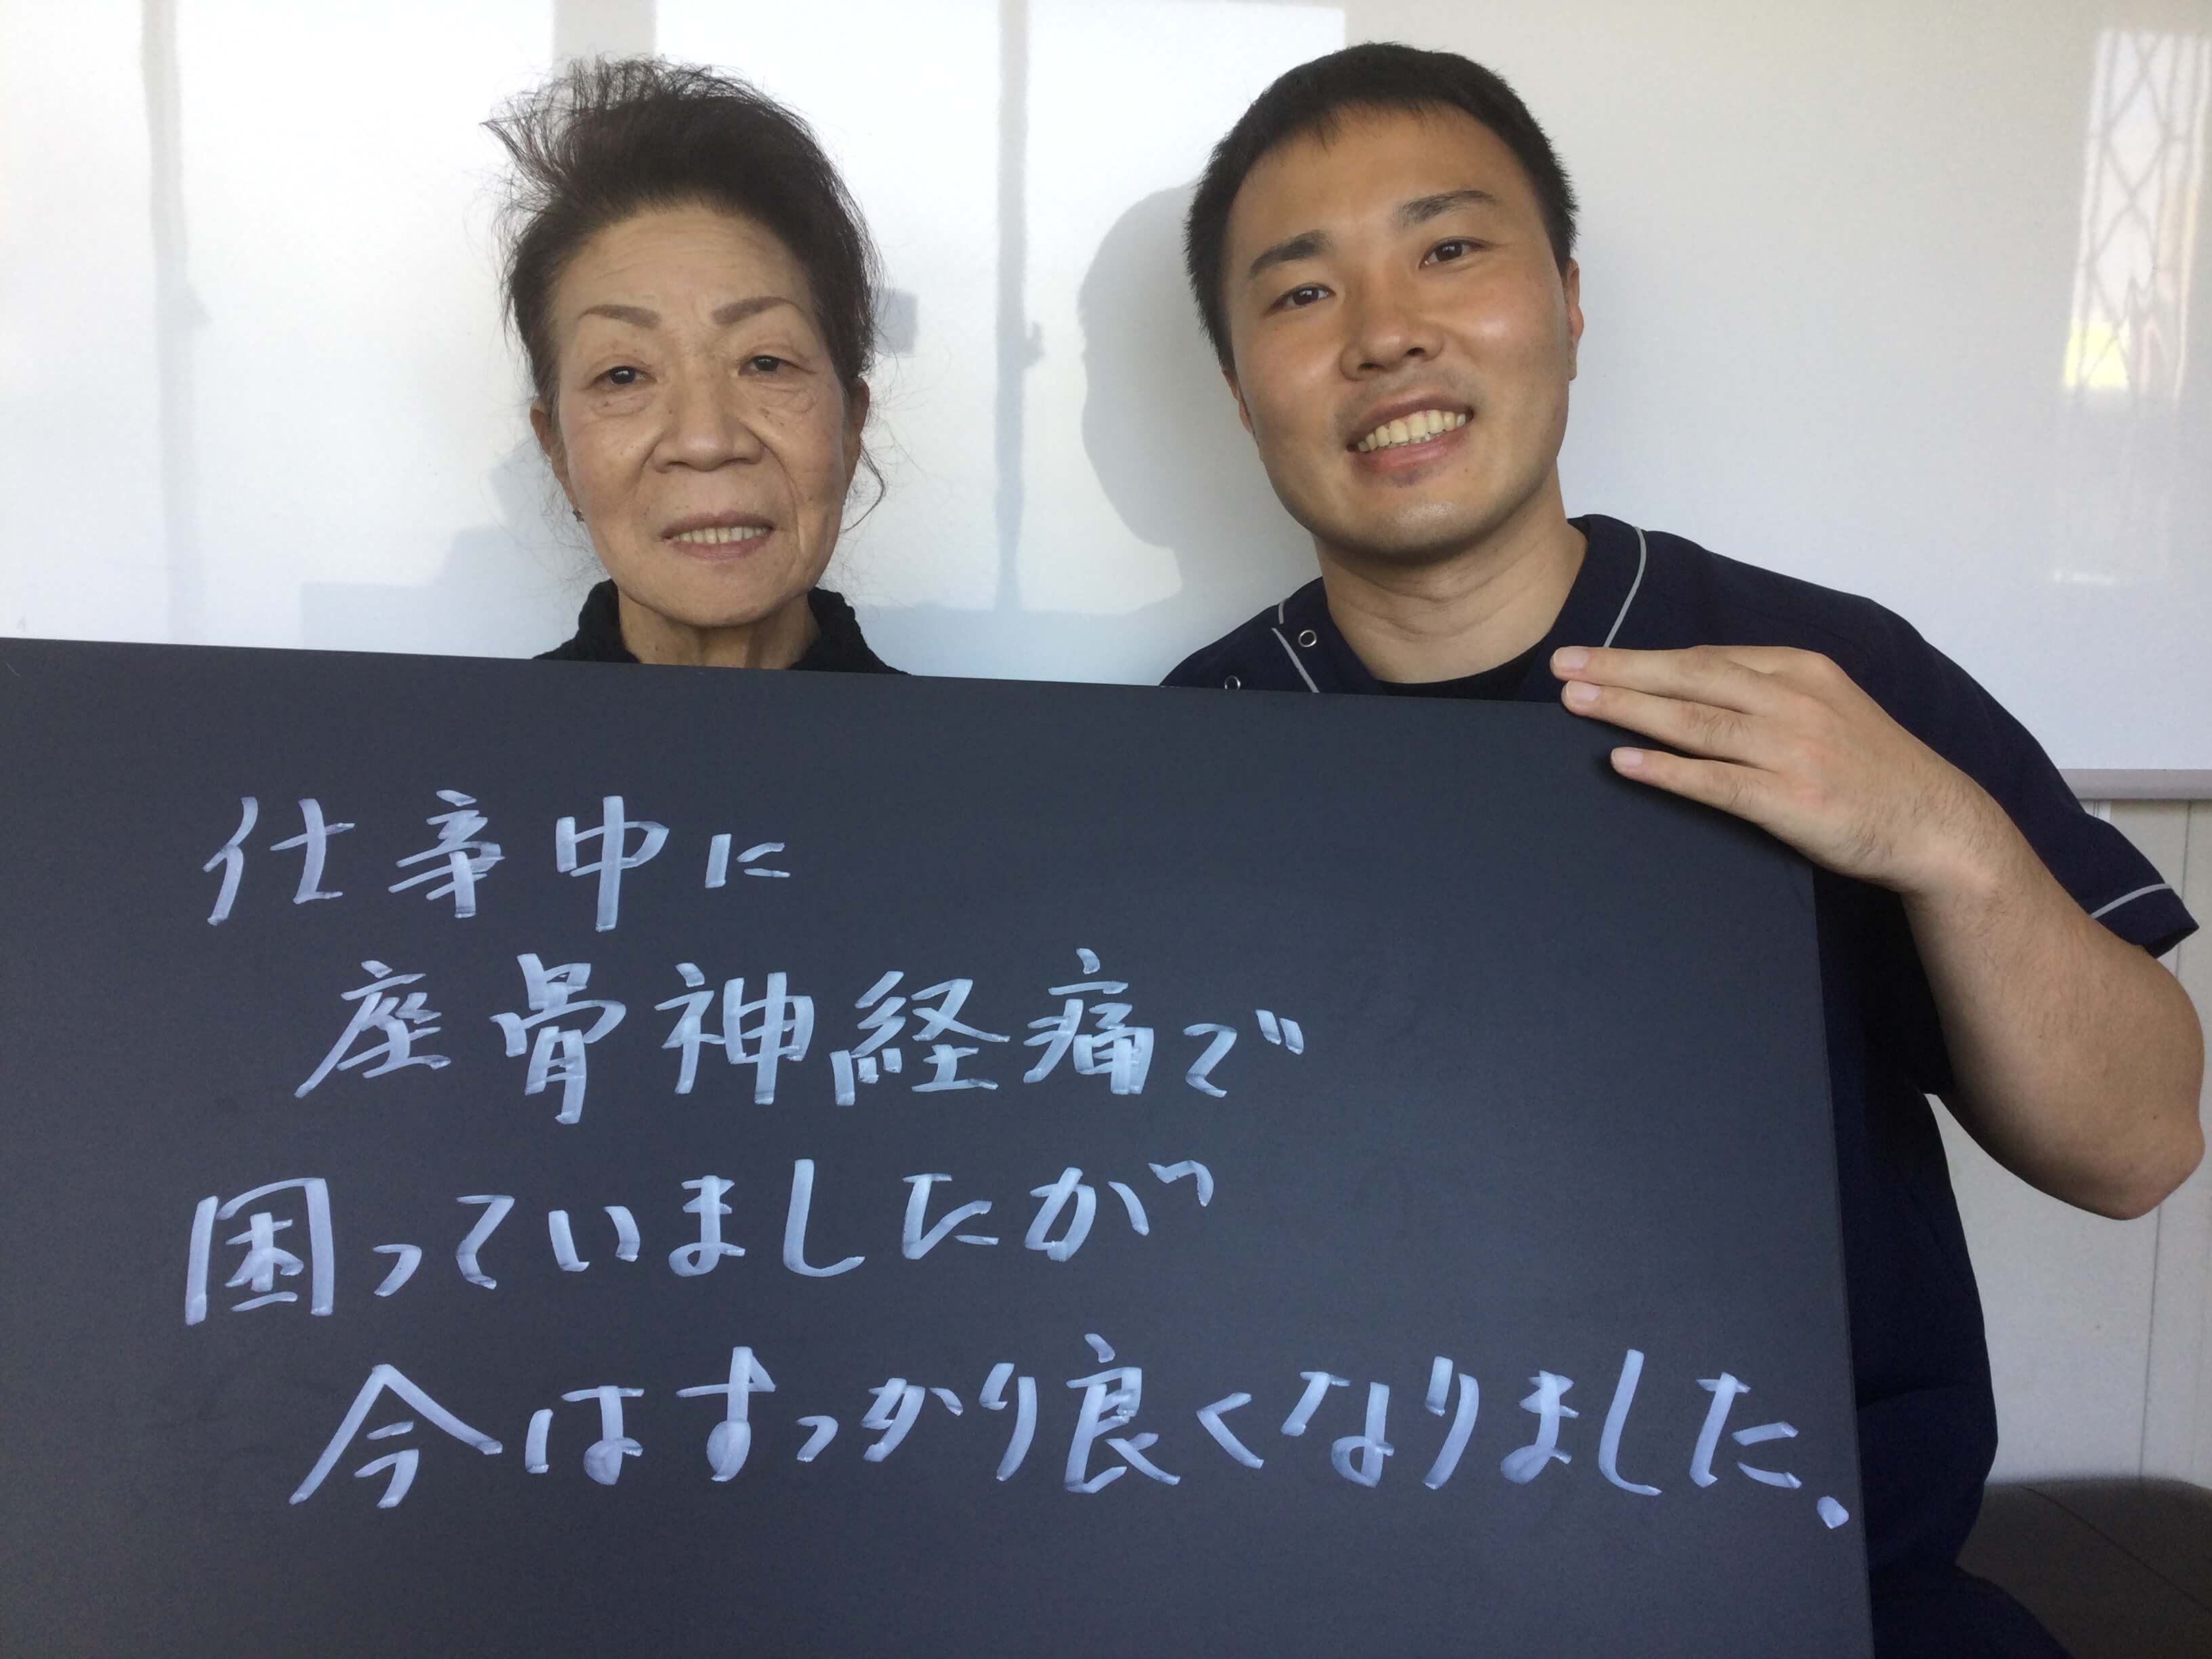 仕事中に
座骨神経痛で
困っていましたが
今はすっかり良くなりました.